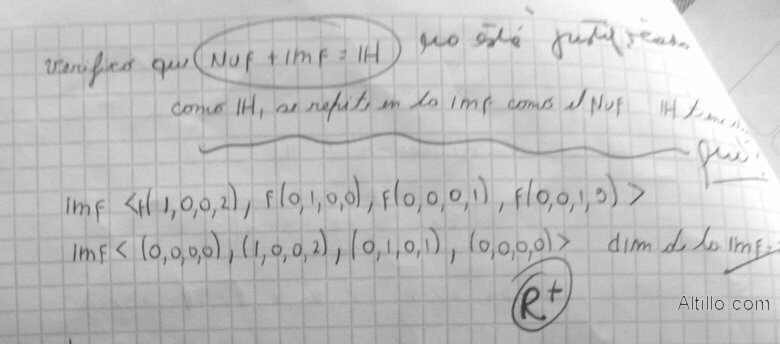 verifico que Nuf + Imf = IH no está justificado
como IH, se repite en la Imf como el Nuf IH
qué?
Imf <f(1,0,0,2), f(0,1,0,0), f(0,0,0,1), f(0,0,1,3)>
Imf < (0,0,0,0), (1,0,0,2), (0,1,0,1), (0,0,0,0)> dim de la Imf=
R+
Altillo com